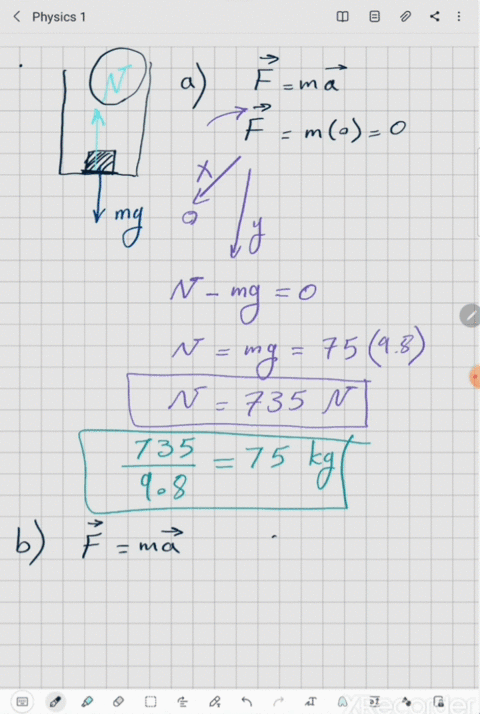 Physics 1
N
mg
a) F = ma
F = m(0) = 0
x
0
y
N - mg = 0
N = mg = 75 (9.8)
N = 735 N
735
9.8
= 75 kg
b) F = ma
XRecorder